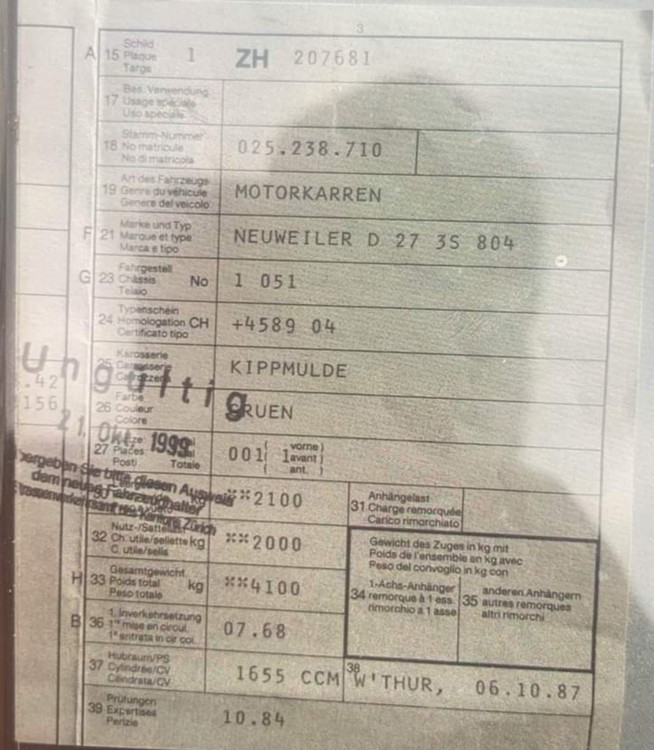 3
A 15 Schild 1 ZH 207681
Plaque
Targa
17 Bes. Verwendung
Usage spéciale
Uso speciale
18 Stamm-Nummer 025.238.710
No matricule
No di matricola
19 Art des Fahrzeugs MOTORKARREN
Genre du véhicule
Genere del veicolo
F 21 Marke und Typ NEUWEILER D 27 3S 804
Marque et type
Marca e tipo
G 23 Fahrgestell No 1 051
Châssis
Telaio
24 Typenschein +4589 04
Homologation CH
Certificato tipo
25 Karosserie KIPPMULDE
Ungültig
.42
156
26 Farbe GRUEN
Couleur
Colore
21. Okt. 1999
27 Places 001( 1 vorne )
Posti Totale ( avant )
( ant. )
Übergeben Sie bitte diesen Ausweis
dem neuen Fahrzeughalter
Strassenverkehrsamt des Kantons Zürich
kg **2100
31 Anhängelast
Charge remorquée
Carico rimorchiato
32 Nutz-/Sattellast **2000
Ch. utile/sellette kg
C. utile/sella
Gewicht des Zuges in kg mit
Poids de l'ensemble en kg avec
Peso del convoglio in kg con
H 33 Gesamtgewicht kg **4100
Poids total
Peso totale
34 1-Achs-Anhänger
remorque à 1 ess.
rimorchio a 1 asse
35 anderen Anhängern
autres remorques
altri rimorchi
B 36 1. Inverkehrsetzung 07.68
1re mise en circul.
1a entrata in cir col.
37 Hubraum/PS 1655 CCM
Cylindrée/CV
Cilindrata/CV
38 W'THUR, 06.10.87
39 Prüfungen 10.84
Expertises
Perizie